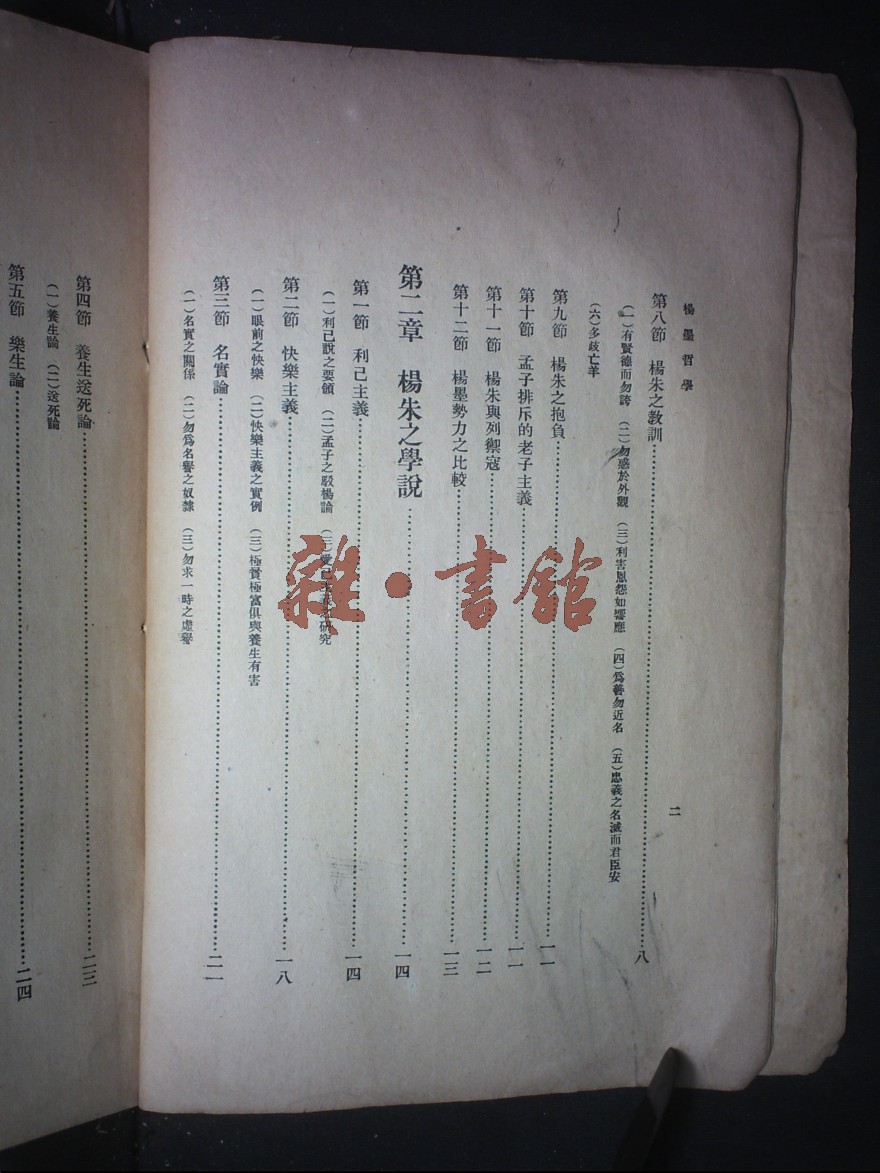 楊墨哲學
二
第八節　楊朱之教訓……八
（一）有賢德而勿誇　（二）勿惑於外觀　（三）利害恩怨如響應　（四）爲善勿近名　（五）忠義之名滅而君臣安
（六）多歧亡羊
第九節　楊朱之抱負……一一
第十節　孟子排斥的老子主義……一一
第十一節　楊朱與列禦寇……一二
第十二節　楊墨勢力之比較……一三
第二章　楊朱之學說……一四
第一節　利己主義……一四
（一）利己說之要領　（二）孟子之駁楊論　（三）愛己　研究
第二節　快樂主義……一八
（一）眼前之快樂　（二）快樂主義之實例　（三）極貧極富俱與養生有害
第三節　名實論……二一
（一）名實之關係　（二）勿爲名譽之奴隷　（三）勿求一時之虛譽
第四節　養生送死論……二三
（一）養生論　（二）送死論
第五節　樂生論……二四
雜·書館